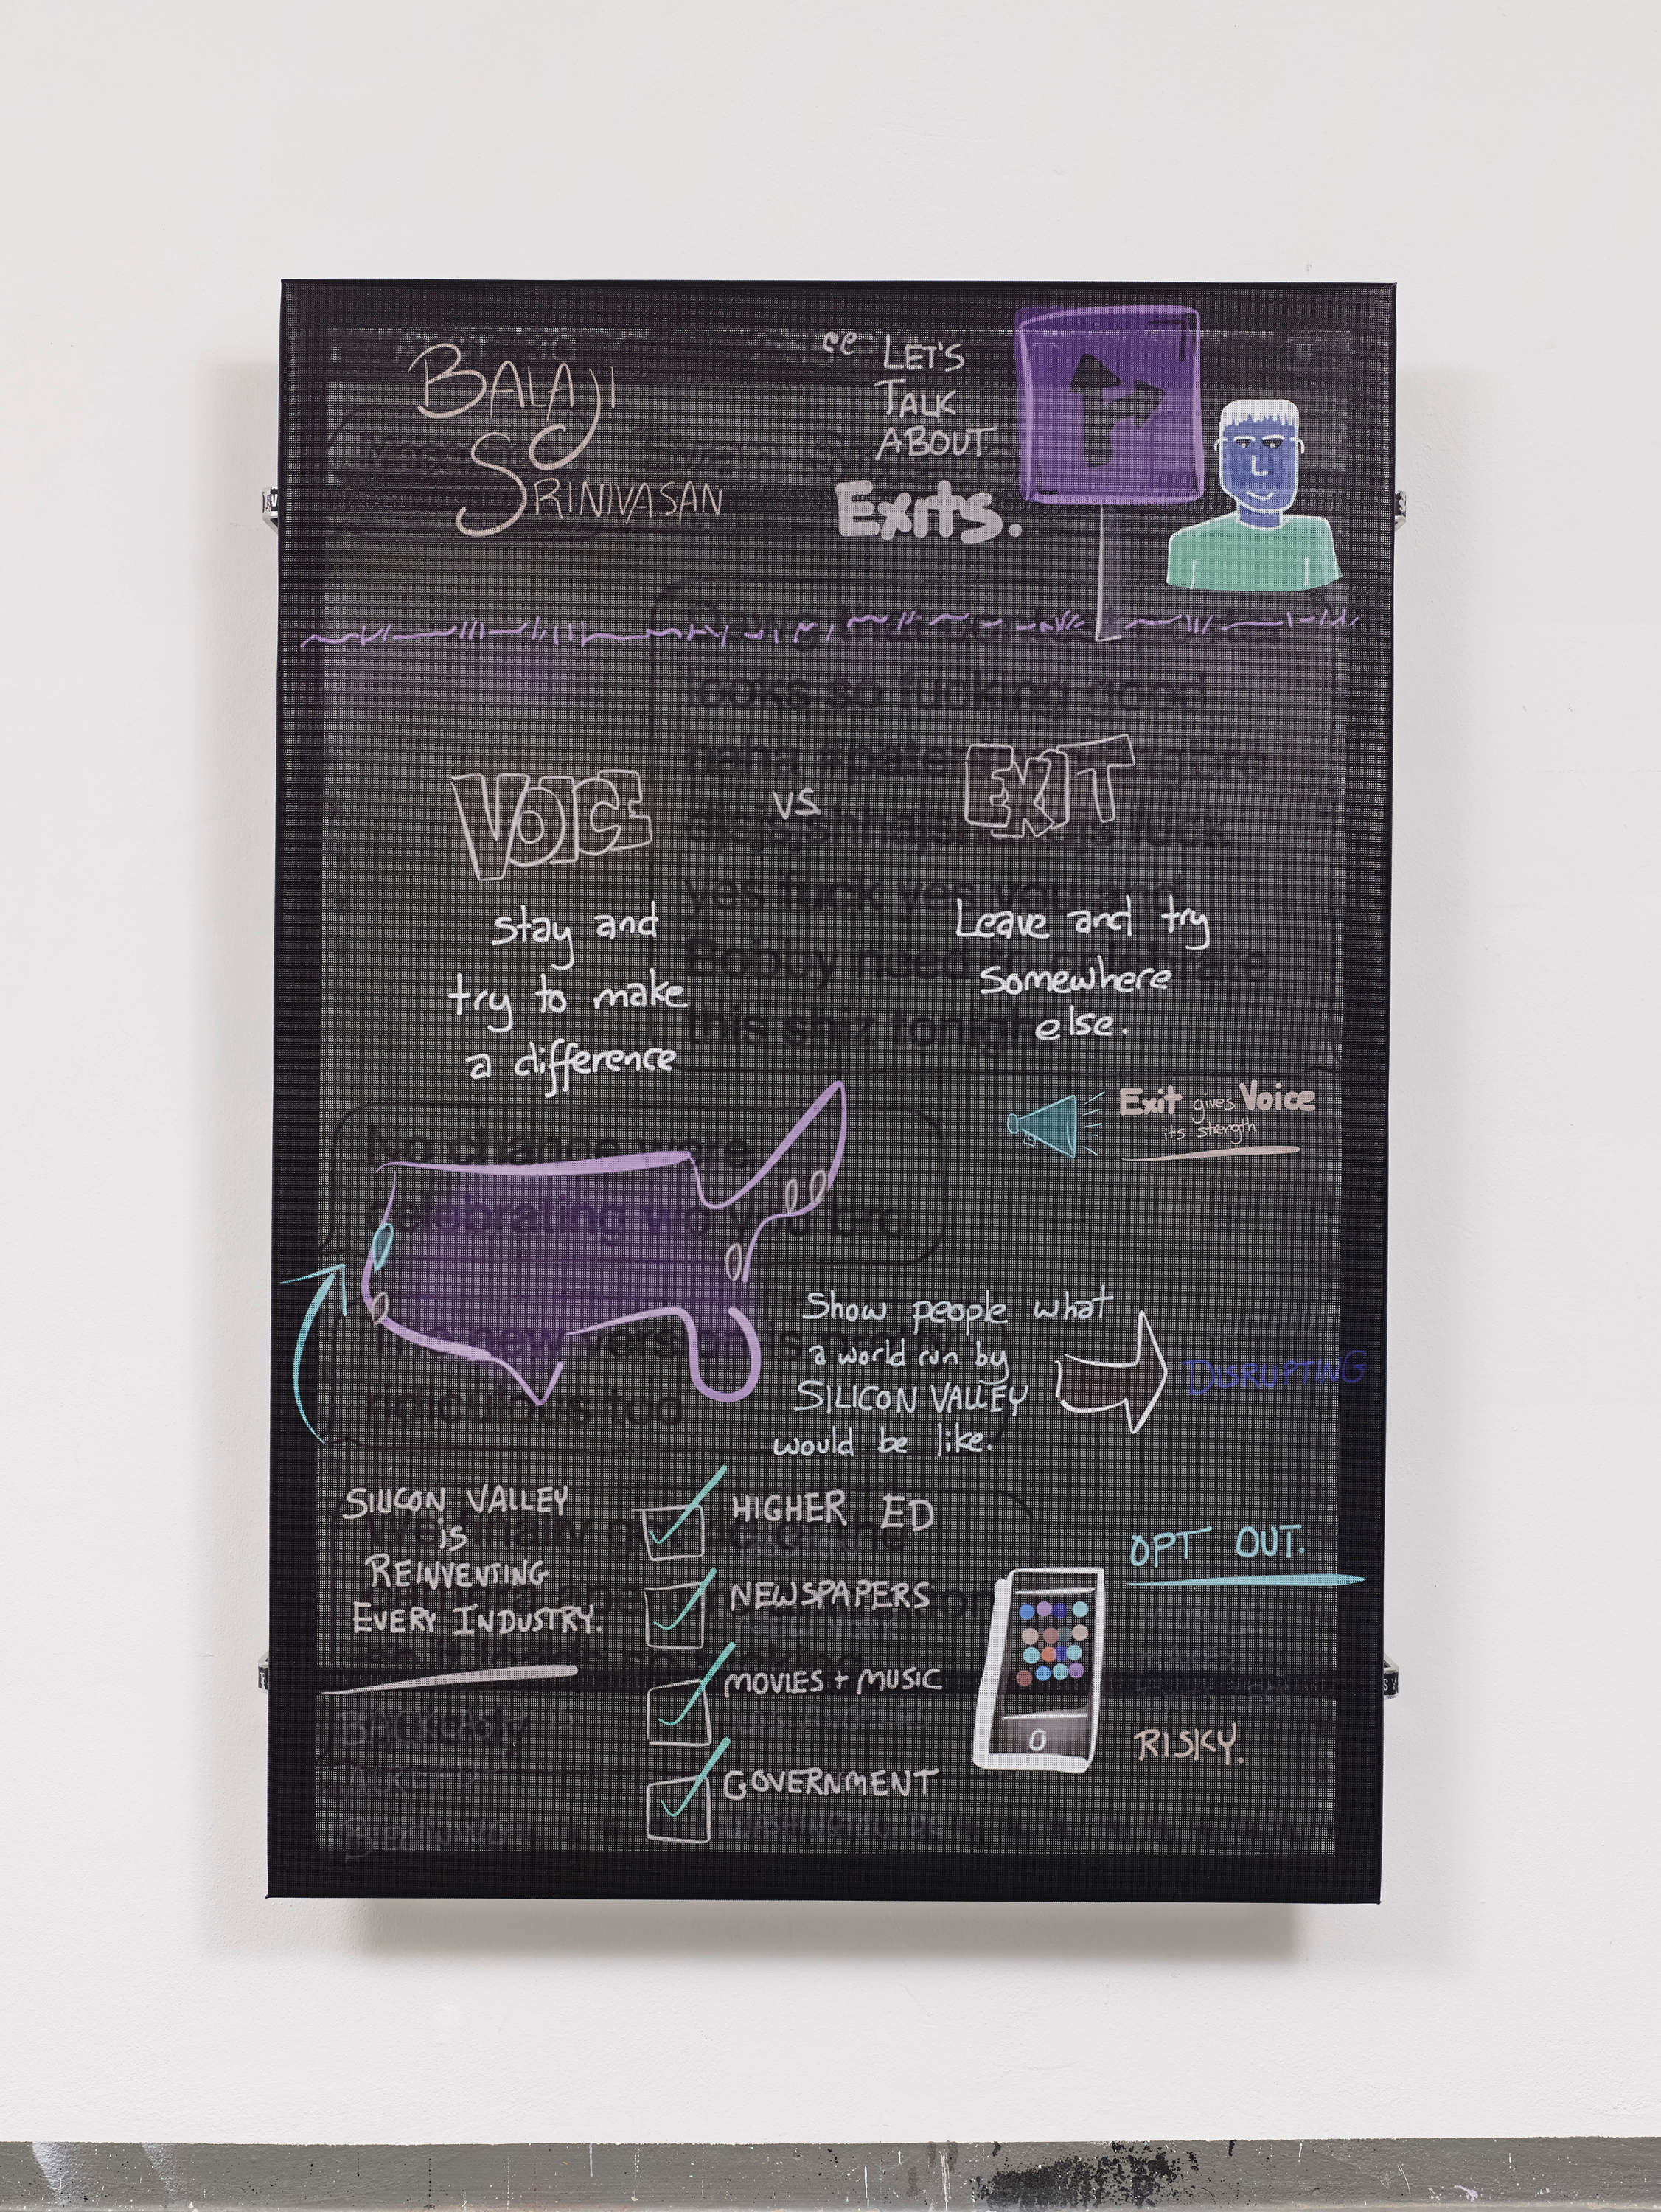 BALAJI
SRINIVASAN
LET'S
TALK
ABOUT
Exits.
AT&T 3G
Evan Spiege
Dawg that contest poster
looks so fucking good
haha #patentpendingbro
fuck
yes fuck yes you and
Bobby need to celebrate
this shiz tonigh
VOICE
vs
EXIT
stay and
try to make
a difference
Leave and try
Somewhere
else.
Exit gives Voice
its strength
No chance were
celebrating wo you bro
The new version is pretty
ridiculous too
Show people what
a world run by
SILICON VALLEY
would be like.
WITHOUT
DISRUPTING
We finally got rid of the
camera aperture animation
so it loads so fucking
SILICON VALLEY
is
REINVENTING
EVERY INDUSTRY.
BACKLASH IS
ALREADY
BEGINING
HIGHER ED
BOSTON
NEWSPAPERS
NEW YORK
MOVIES + MUSIC
LOS ANGELES
GOVERNMENT
WASHINGTON DC
OPT OUT.
MOBILE
MAKES
EXITS LESS
RISKY.